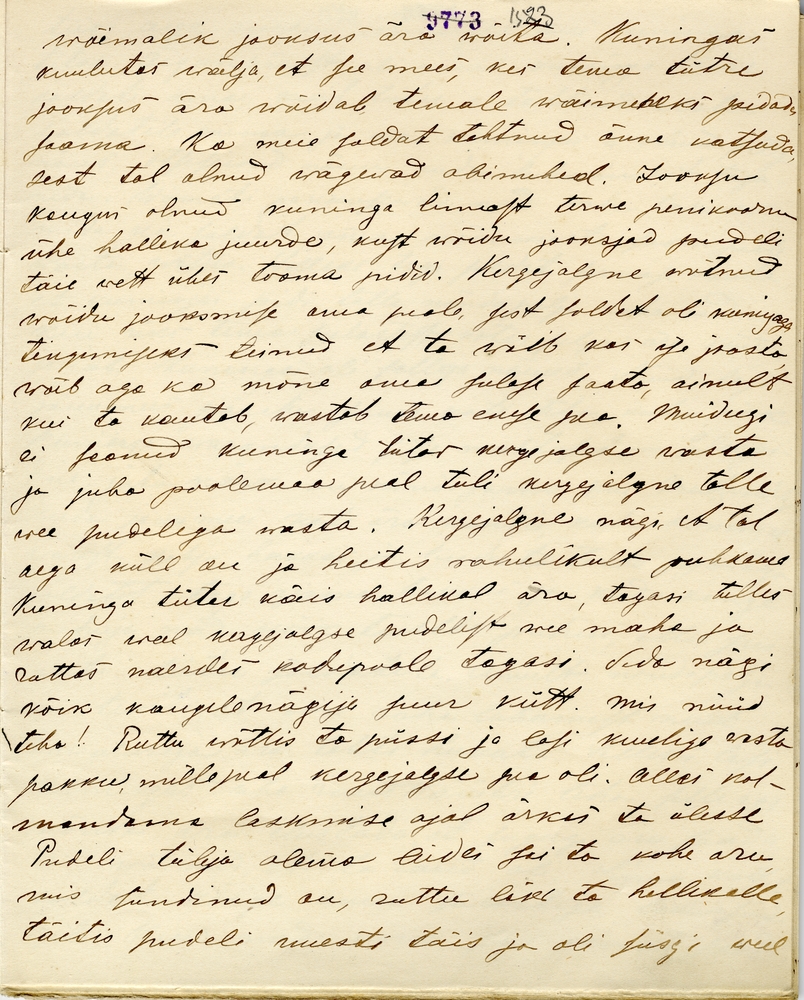 9773 1523
wõimalik jooksus ära wõita. Kuningas
kuulutas wälja, et see mees, kes tema tütre
jooksus ära wõidab, temale wäimeheks pidada
saama. Ka meie soldat tahtnud õnne katsuda,
sest tal olnud wägewad abimehed. Jooksu
kaugus olnud kuninga linnast terwe penikoorm
ühe hallika juurde, kust wõidu jooksjad pudeli
täie wett ühes tooma pidid. Kergejalgne wõtnud
wõidu jooksmise oma peale, sest soldat oli kuningaga
tingimiseks teinud et ta wõib kas ise joosta,
wõib aga ka mõne oma sulase saata, ainult
kui ta kautab, wastab tema enese pea. Muidugi
ei saanud kuninga tütar kergejalgse wasta
ja juba poolemaa peal tuli kergejalgne talle
wee pudeliga wasta. Kergejalgne nägi, et tal
aega küll on ja heitis rahulikult puhkama
Kuninga tütar käis hallikal ära, tagasi tulles
walas weel kergejalgse pudelist wee maha ja
ruttas naerdes kodupoole tagasi. Seda nägi
kõik kaugelenägija suur kütt. Mis nüüd
teha! Ruttu wõttis ta püssi ja lasi kuuliga wasta
pakku, mille peal kergejalgse pea oli. Alles kol-
mandama laskmise ajal ärkas ta ülesse
Pudeli tühja olema leides sai ta kohe aru,
mis sündinud on, ruttu läks ta hallikalle,
täitis pudeli uuesti täis ja oli siisgi weel